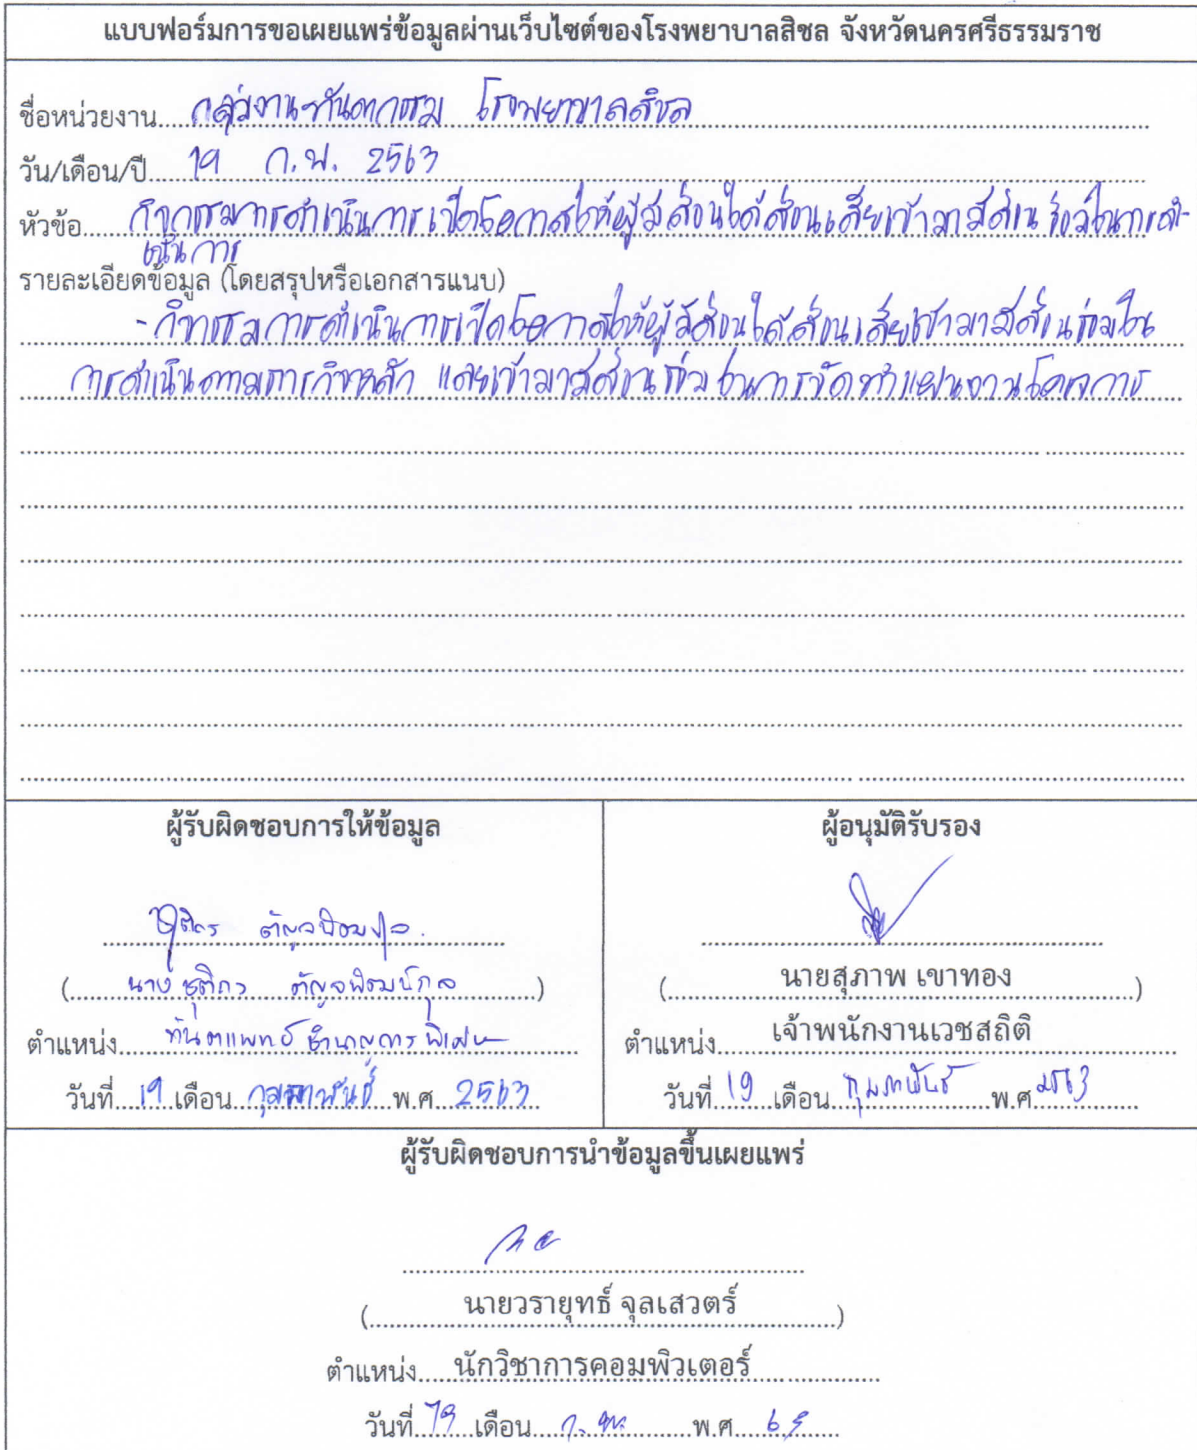 แบบฟอร์มการขอเผยแพร่ข้อมูลผ่านเว็บไซต์ของโรงพยาบาลสิชล จังหวัดนครศรีธรรมราช
ชื่อหน่วยงาน กลุ่มงานทันตกรรม โรงพยาบาลสิชล
วัน/เดือน/ปี 19 ก.พ. 2563
หัวข้อ กิจกรรมการดำเนินการเปิดโอกาสให้ผู้มีส่วนได้ส่วนเสียเข้ามามีส่วนร่วมในการดำ-
เนินการ
รายละเอียดข้อมูล (โดยสรุปหรือเอกสารแนบ)
- กิจกรรมการดำเนินการเปิดโอกาสให้ผู้มีส่วนได้ส่วนเสียเข้ามามีส่วนร่วมใน
การดำเนินตามภารกิจหลัก และเข้ามามีส่วนร่วมในการจัดทำแผนงานโครงการ
ผู้รับผิดชอบการให้ข้อมูล
ชุติกร
(นางชุติกร)
ตำแหน่ง ทันตแพทย์ชำนาญการพิเศษ
วันที่ 19 เดือน กุมภาพันธ์ พ.ศ. 2563
ผู้อนุมัติรับรอง
(นายสุภาพ เขาทอง)
ตำแหน่ง เจ้าพนักงานเวชสถิติ
วันที่ 19 เดือน กุมภาพันธ์ พ.ศ 2563
ผู้รับผิดชอบการนำข้อมูลขึ้นเผยแพร่
(นายวรายุทธ์ จุลเสวตร์)
ตำแหน่ง นักวิชาการคอมพิวเตอร์
วันที่ 19 เดือน ก.พ. พ.ศ.